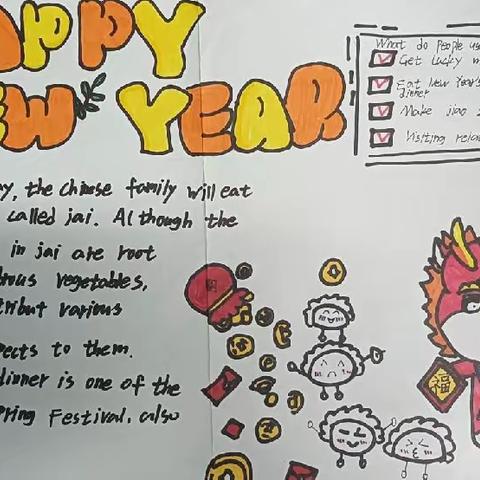 APPY
EW YEAR
What do people us
Get Lucky m
Eat New Year's
dinner
Make jiao z
Visiting rela
ay, the chinese family will eat
called jai. Al though the
in jai are root
brous vegetables,
tribut various
pects to them.
dinner is one of the
pring Festival. also
福